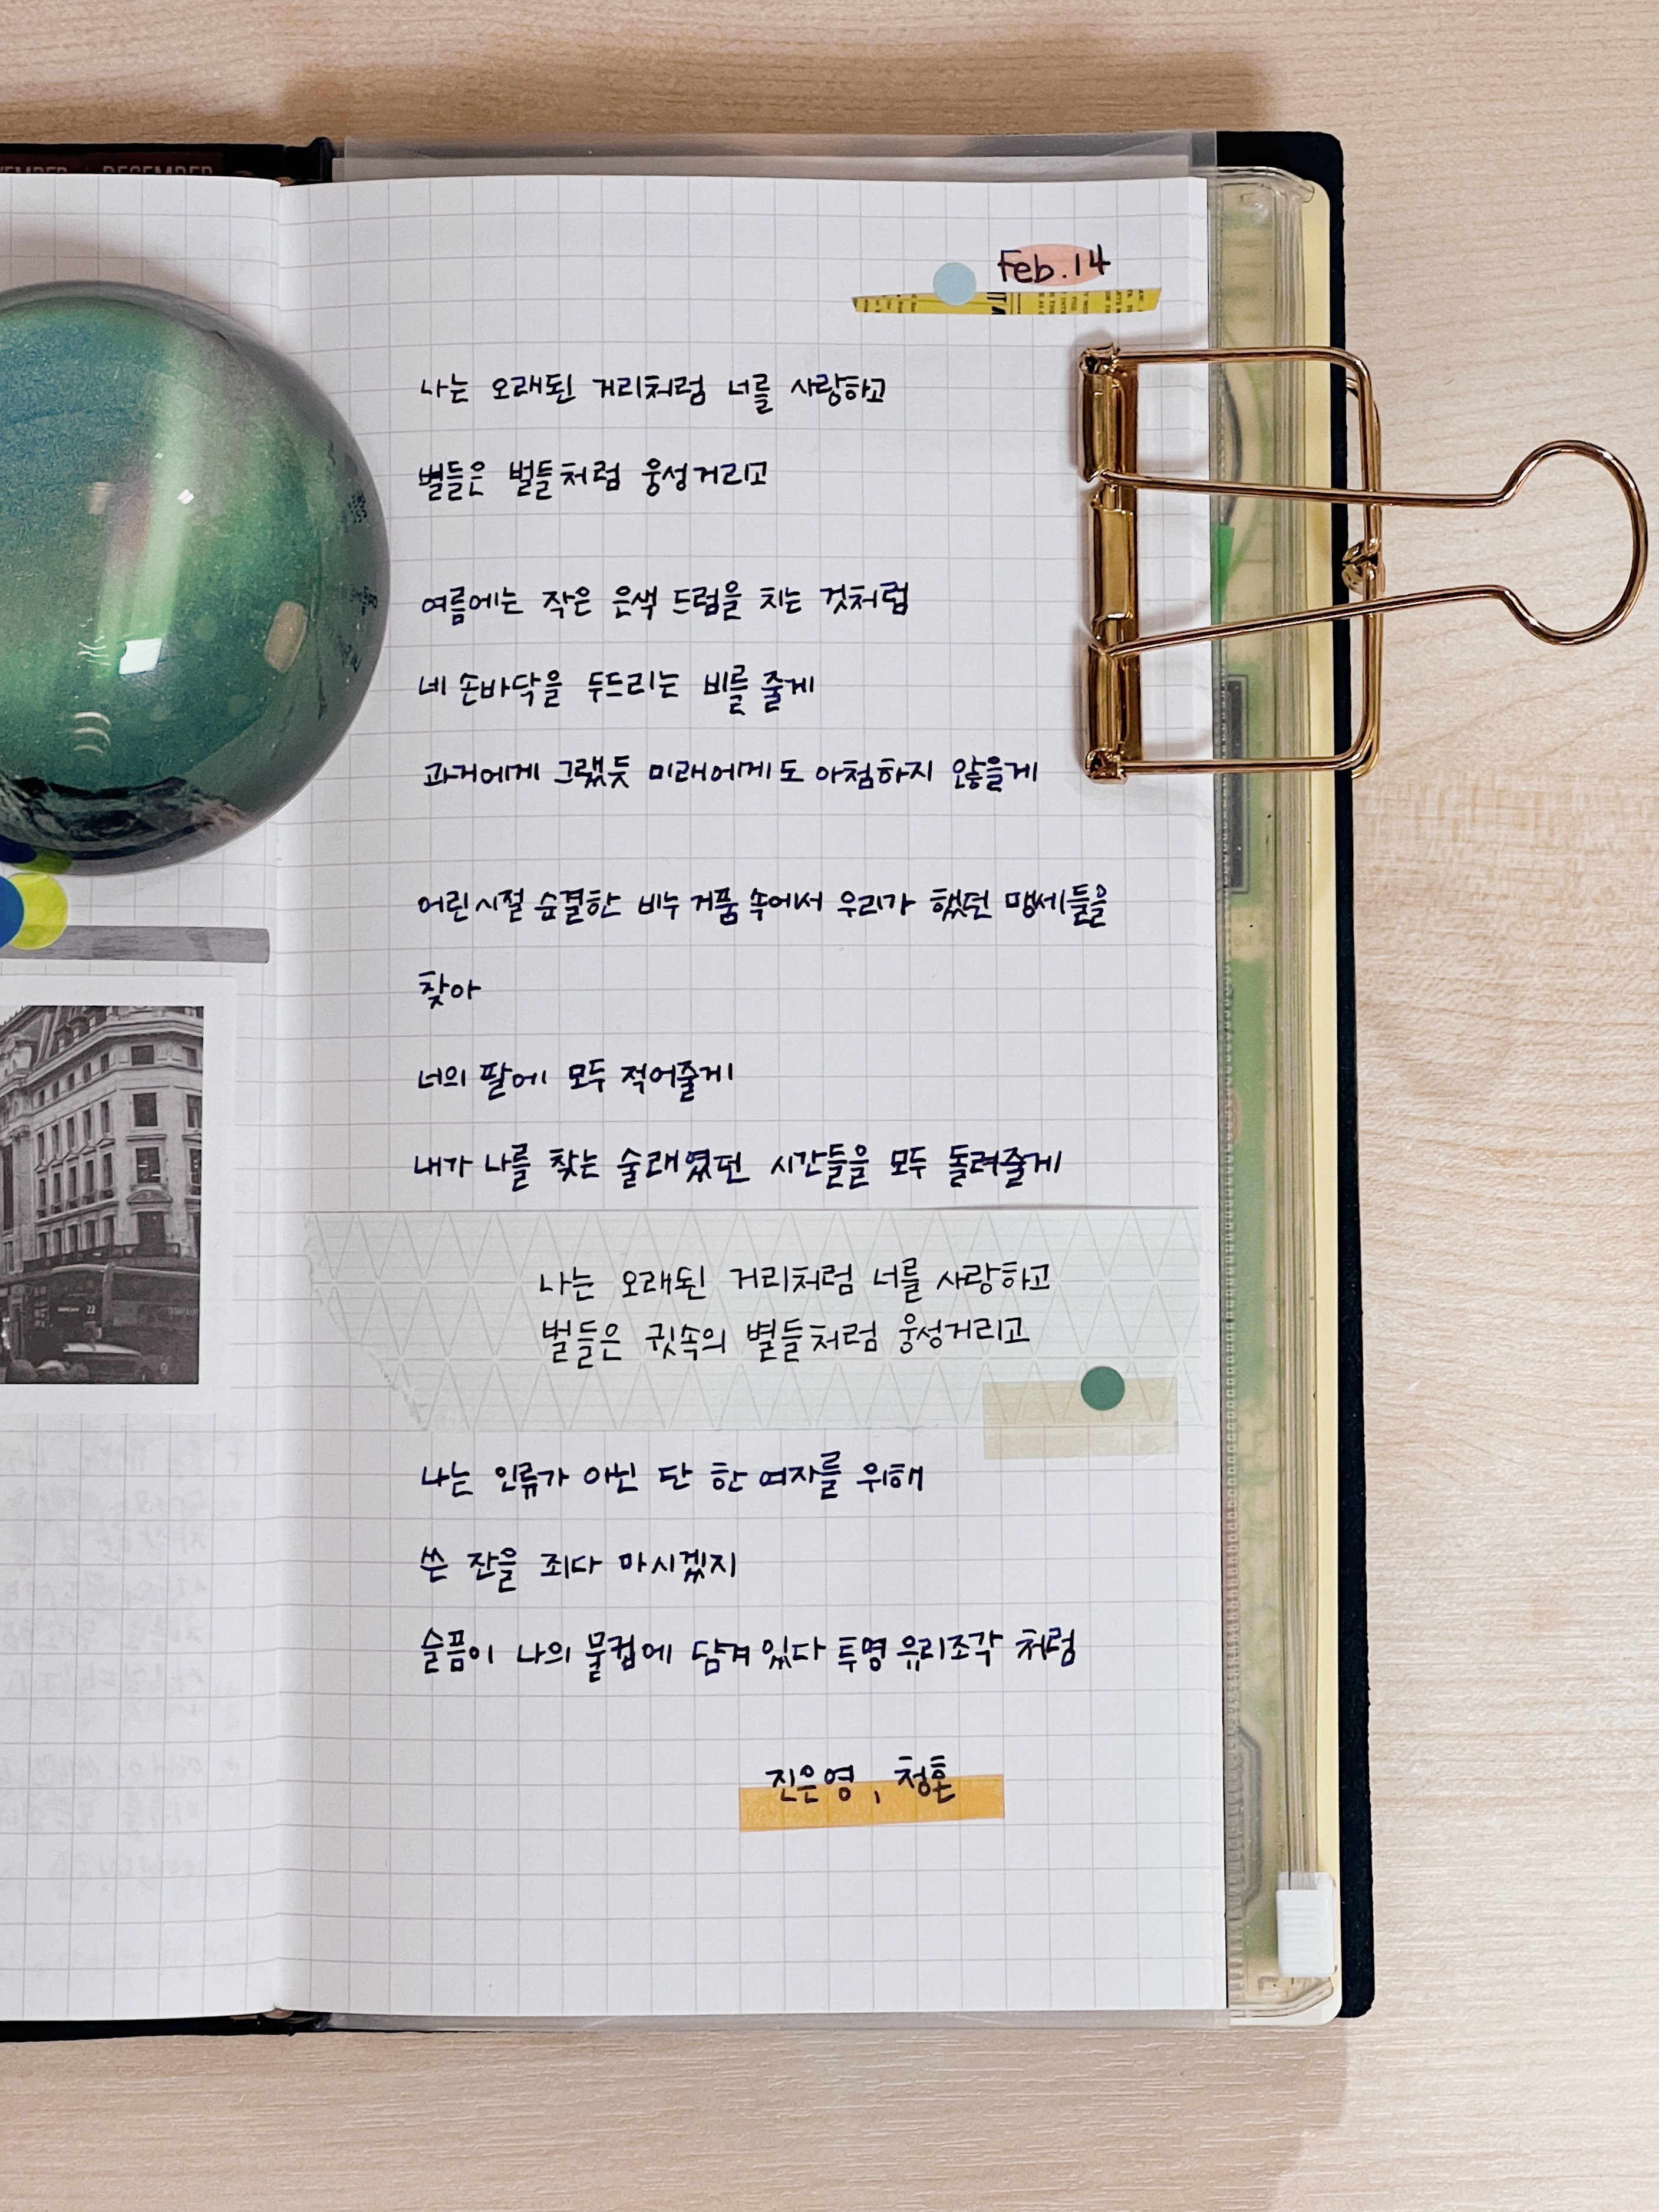 Feb.14
나는 오래된 거리처럼 너를 사랑하고
별들은 벌들처럼 웅성거리고
여름에는 작은 은색 드럼을 치는 것처럼
네 손바닥을 두드리는 비를 줄게
과거에게 그랬듯 미래에게도 아첨하지 않을게
어린시절 순결한 비누 거품 속에서 우리가 했던 맹세들을
찾아
너의 팔에 모두 적어줄게
내가 나를 찾는 술래였던 시간들을 모두 돌려줄게
나는 오래된 거리처럼 너를 사랑하고
벌들은 귓속의 별들처럼 웅성거리고
나는 인류가 아닌 단 한 여자를 위해
쓴 잔을 죄다 마시겠지
슬픔이 나의 물컵에 담겨있다 투명 유리조각 처럼
진은영, 청혼